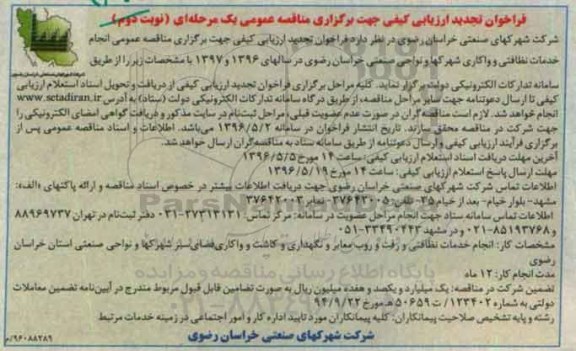 فراخوان تجدید ارزیابی کیفی جهت برگزاری مناقصه عمومی یک مرحله‌ای (نوبت دوم)
شرکت شهرکهای صنعتی خراسان رضوی در نظر دارد فراخوان تجدید ارزیابی کیفی جهت برگزاری مناقصه عمومی انجام
خدمات نظافتی و واکاری شهرکها و نواحی صنعتی خراسان رضوی در سالهای ۱۳۹۶ و ۱۳۹۷ با مشخصات زیر را از طریق
سامانه تدارکات الکترونیکی دولت برگزار نماید. کلیه مراحل برگزاری فراخوان تجدید ارزیابی کیفی از دریافت و تحویل اسناد استعلام ارزیابی
کیفی تا ارسال دعوتنامه جهت سایر مراحل مناقصه، از طریق درگاه سامانه تدارکات الکترونیکی دولت (ستاد) به آدرس www.setadiran.ir
انجام خواهد شد. لازم است مناقصه‌گران در صورت عدم عضویت قبلی، مراحل ثبت‌نام در سایت مذکور و دریافت گواهی امضای الکترونیکی را
جهت شرکت در مناقصه محقق سازند. تاریخ انتشار فراخوان در سامانه ۱۳۹۶/۵/۲ می‌باشد. اطلاعات و اسناد مناقصه عمومی پس از
برگزاری فرآیند ارزیابی کیفی و ارسال دعوتنامه از طریق سامانه ستاد به مناقصه‌گران ارسال خواهد شد.
آخرین مهلت دریافت اسناد استعلام ارزیابی کیفی: ساعت ۱۴ مورخ ۱۳۹۶/۵/۵
مهلت ارسال پاسخ استعلام ارزیابی کیفی: ساعت ۱۴ مورخ ۱۳۹۶/۵/۱۹
اطلاعات تماس شرکت شهرکهای صنعتی خراسان رضوی جهت دریافت اطلاعات بیشتر در خصوص اسناد مناقصه و ارائه پاکتهای «الف»:
مشهد- بلوار خیام- بعد از خیام ۳۵- تلفن: ۳۷۶۴۳۰۰۵- نمابر ۳۷۶۴۲۰۰۳
اطلاعات تماس سامانه ستاد جهت انجام مراحل عضویت در سامانه: مرکز تماس: ۳۷۳۱۳۱۳۱-۰۳۱ دفتر ثبت‌نام در تهران ۸۸۹۶۹۷۳۷
و ۸۵۱۹۳۷۶۸-۰۲۱ و در مشهد ۳۳۴۹۰۴۴۳-۰۵۱
مشخصات کار: انجام خدمات نظافتی و رفت و روب معابر و نگهداری و کاشت و واکاری فضای سبز شهرکها و نواحی صنعتی استان خراسان
رضوی
مدت انجام کار: ۱۲ ماه
تضمین شرکت در مناقصه: یک میلیارد و یکصد و هفده میلیون ریال به صورت تضامین قابل قبول مربوط مندرج در آیین‌نامه تضمین معاملات
دولتی به شماره ۱۲۳۴۰۲/ت۵۰۶۵۹ هـ مورخ ۹۴/۹/۲۲
رشته و پایه تشخیص صلاحیت پیمانکاران: کلیه پیمانکاران مورد تایید اداره کار و امور اجتماعی در زمینه خدمات مرتبط
شرکت شهرکهای صنعتی خراسان رضوی
۹۶۰۸۸۲۸۹/م